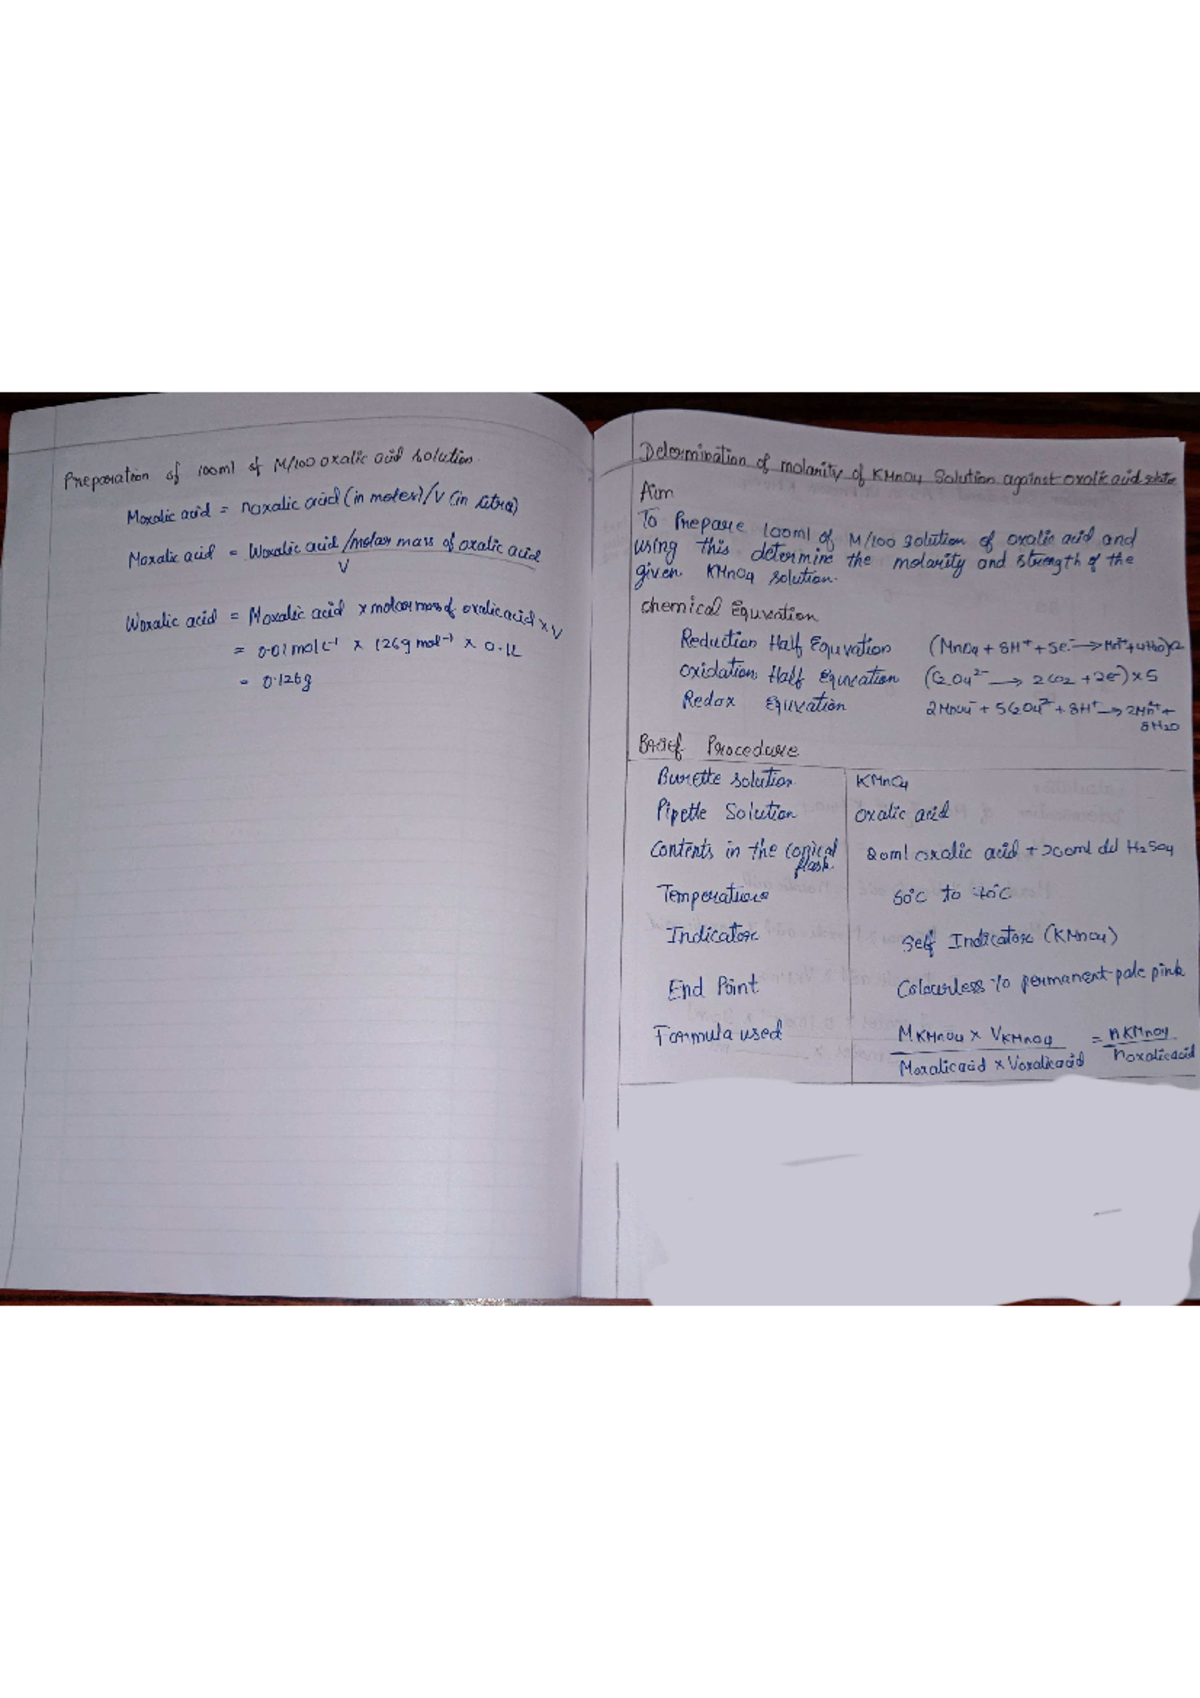 Preparation of 100ml of M/100 oxalic acid solution.
Moxalic acid = noxalic acid (in moles)/V (in litra)
Moxalic acid = Woxalic acid/molar mass of oxalic acid
V
Woxalic acid = Moxalic acid × molar mass of oxalic acid × V
= 0.01 mol L⁻¹ × 126g mol⁻¹ × 0.1L
= 0.126g
Determination of molarity of KMnO4 Solution against oxalic acid
Aim
To Prepare 100ml of M/100 solution of oxalic acid and
using this determine the molarity and strength of the
given KMnO4 solution.
chemical Equation
Reduction Half Equation (MnO4 + 8H⁺ + 5e⁻ → Mn²⁺+4H2O)×2
Oxidation Half Equation (C2O4²⁻ → 2CO2 + 2e⁻) × 5
Redox Equation 2MnO4⁻ + 5C2O4²⁻ + 8H⁺ → 2Mn²⁺ +
8H2O
Brief Procedure
Burette solution KMnO4
Pipette Solution Oxalic acid
Contents in the Conical 20ml oxalic acid + dil H2SO4
flask.
Temperature 60°C to 70°C
Indicator Self Indicator (KMnO4)
End Point Colourless to permanent pale pink
Formula used MKMnO4 × VKMnO4 = nKMnO4
Moxalic acid × Voxalic acid noxalic acid